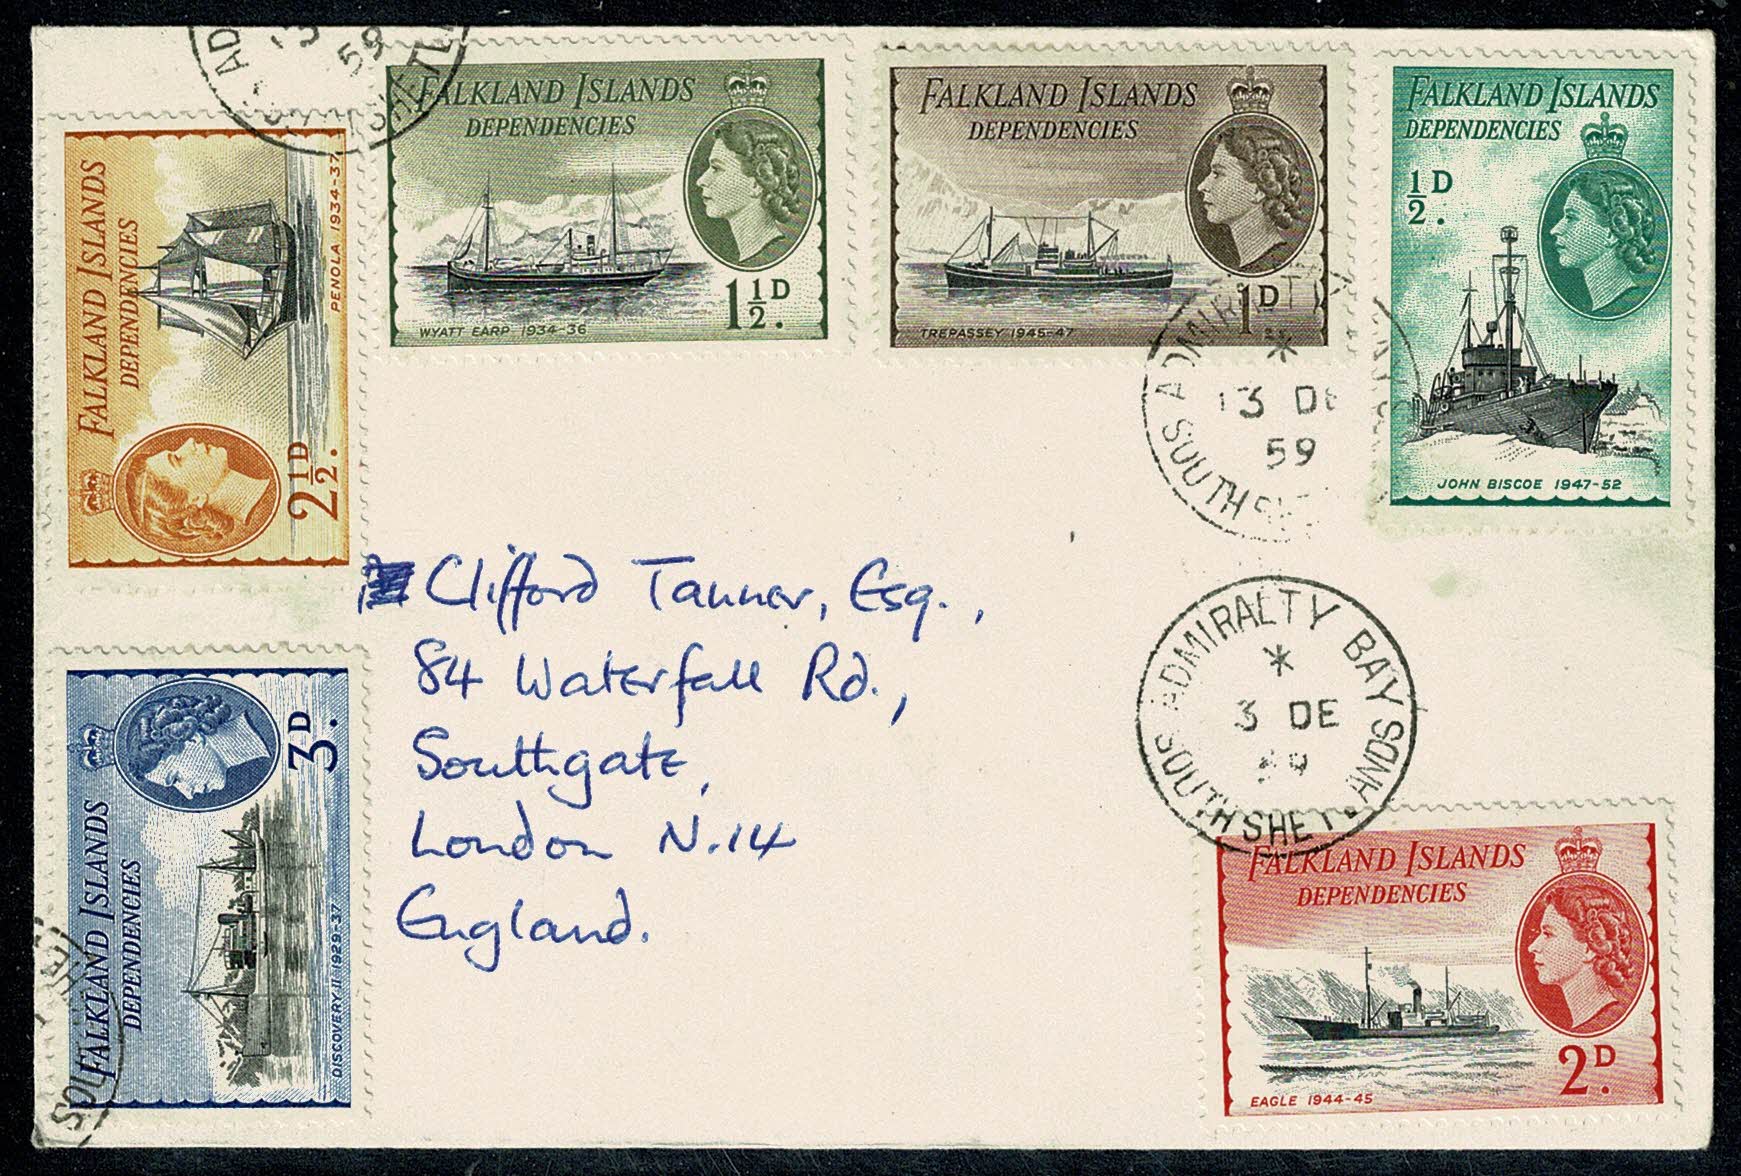 FALKLAND ISLANDS
DEPENDENCIES
PENOLA 1934-37
2½D.
FALKLAND ISLANDS
DEPENDENCIES
WYATT EARP 1934-36
1½D.
FALKLAND ISLANDS
DEPENDENCIES
TREPASSEY 1945-47
1D.
FALKLAND ISLANDS
DEPENDENCIES
½D.
JOHN BISCOE 1947-52
59
13 DE
59
Clifford Tanner, Esq.,
84 Waterfall Rd.,
Southgate,
London N.14
England.
ADMIRALTY BAY
3 DE
SOUTH SHETLANDS
FALKLAND ISLANDS
DEPENDENCIES
DISCOVERY III 1929-37
3D.
FALKLAND ISLANDS
DEPENDENCIES
EAGLE 1944-45
2D.